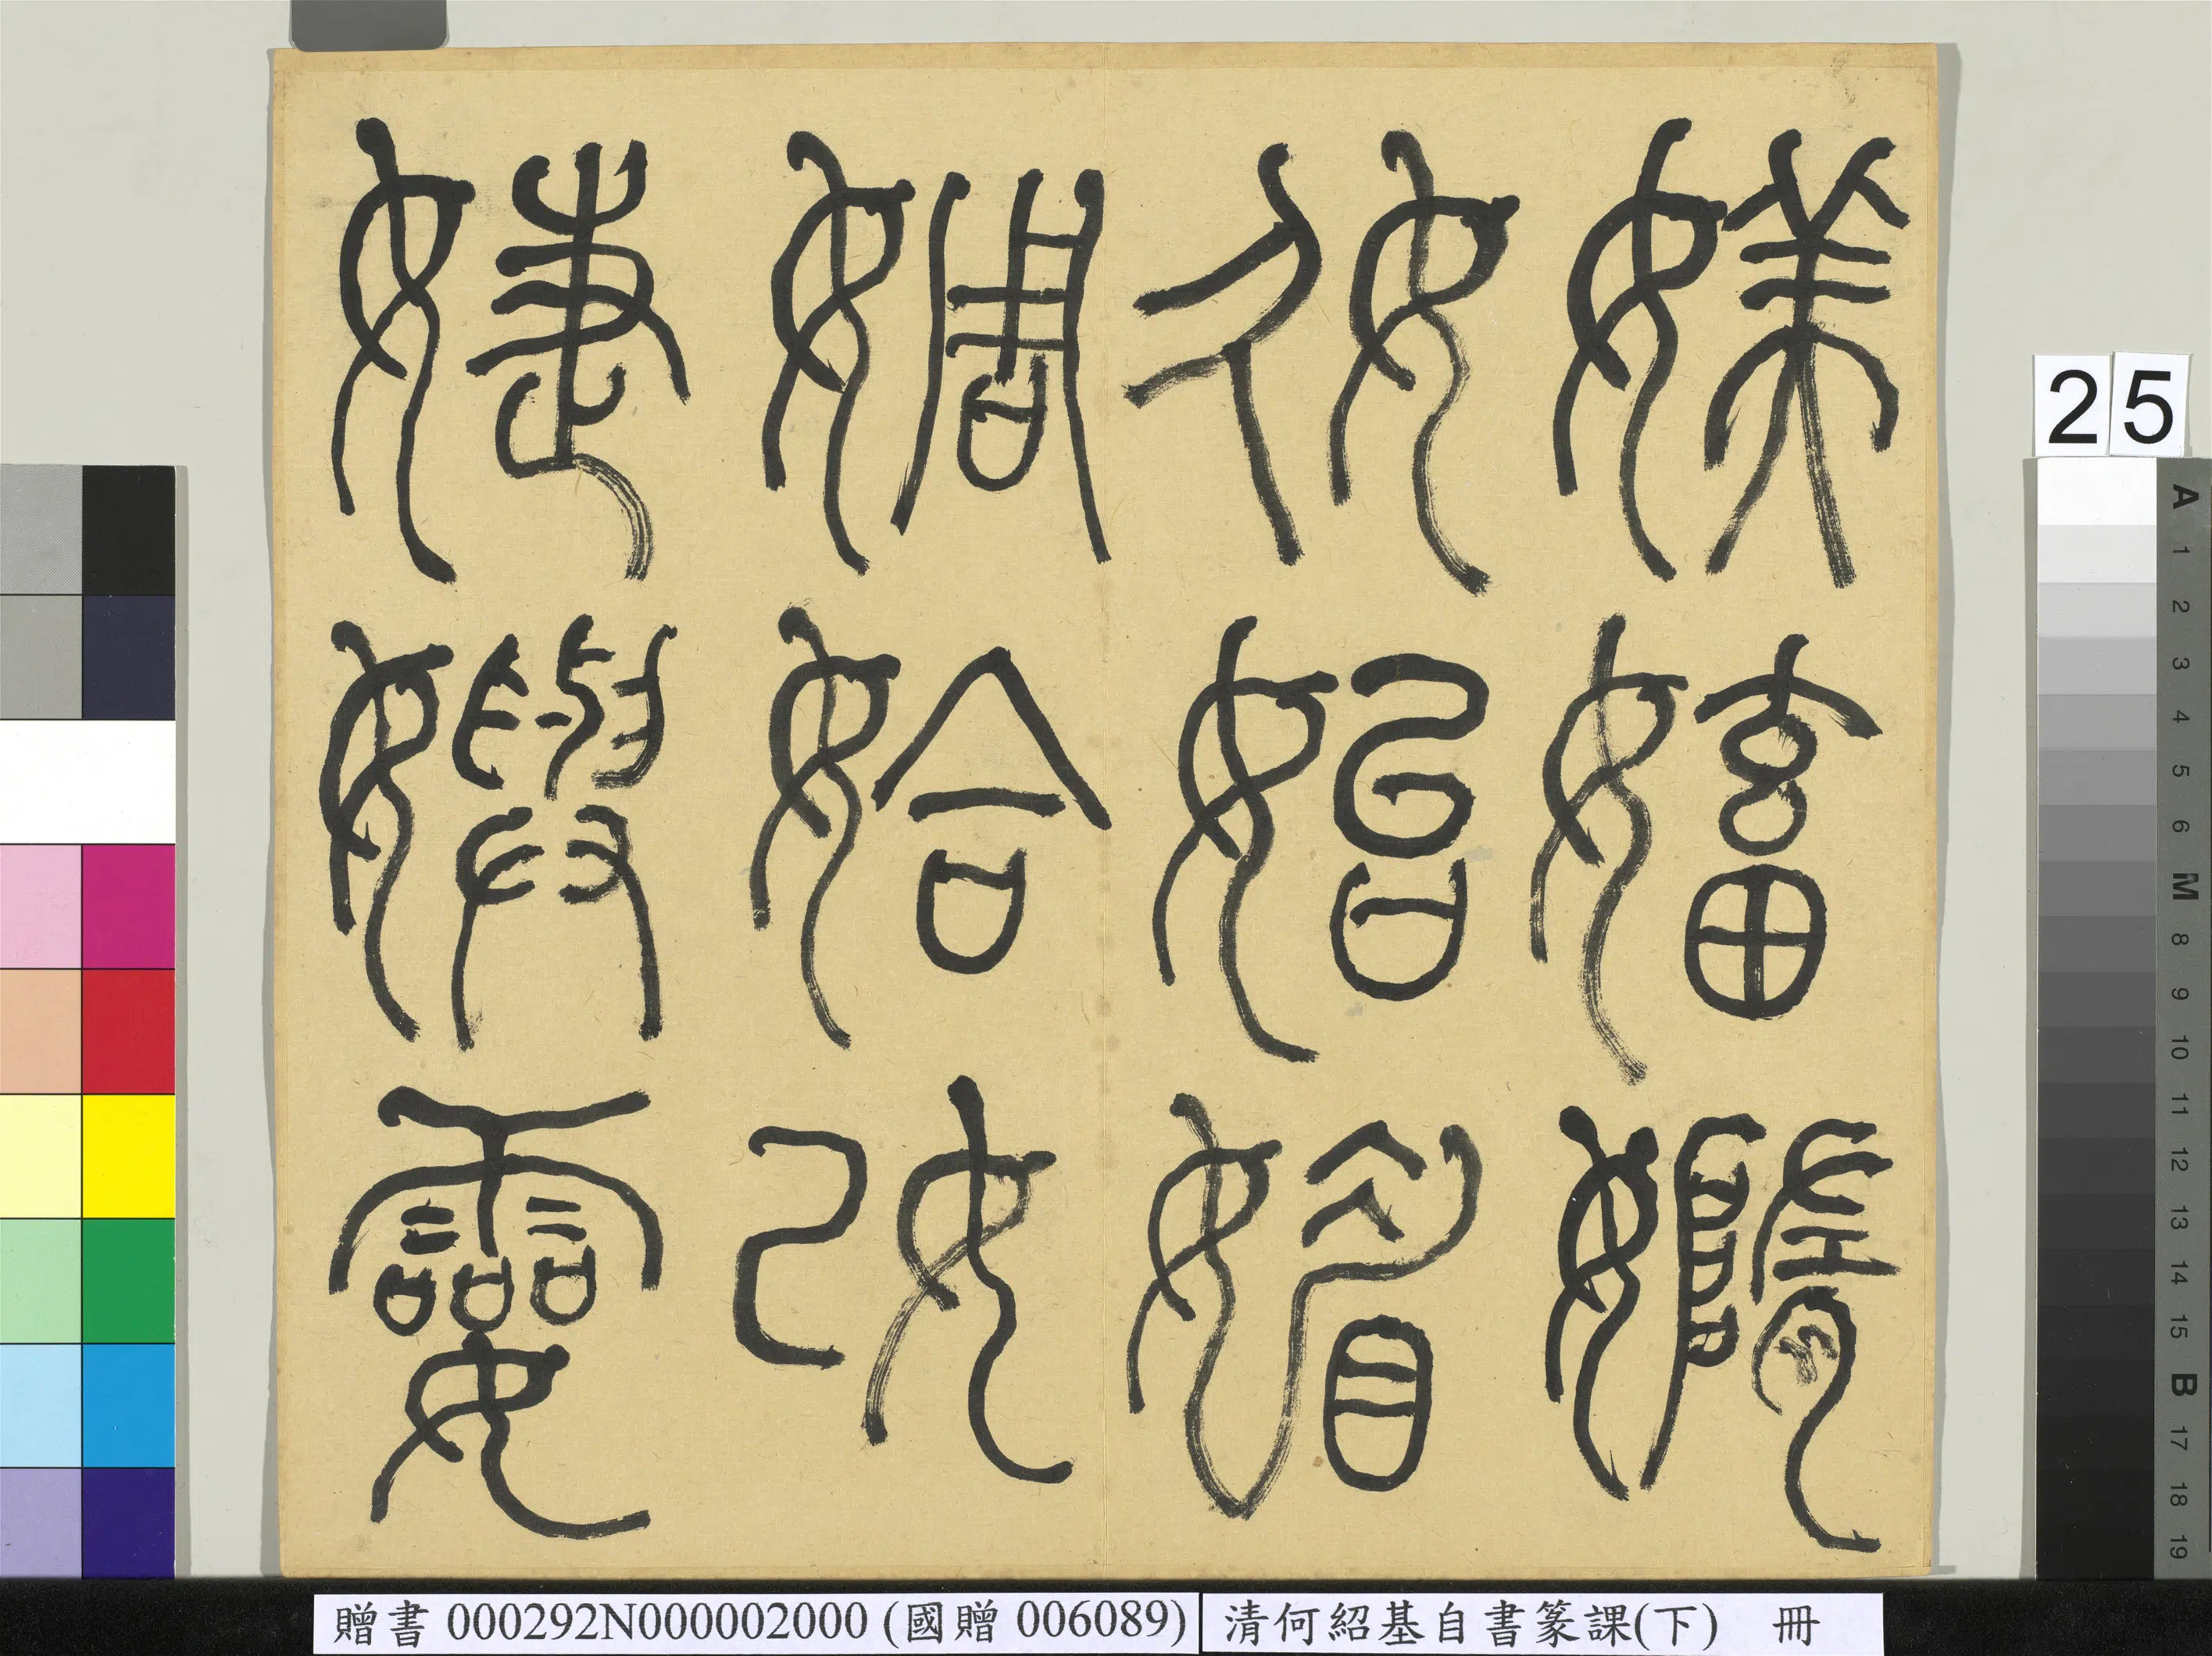 媄㜅嫷
奺始媚
婤姶妀
婕嬩孁
25
A 1 2 3 4 5 6 M 8 9 10 11 12 13 14 15 B 17 18 19
贈書 000292N000002000 (國贈 006089)
清何紹基自書篆課(下) 冊